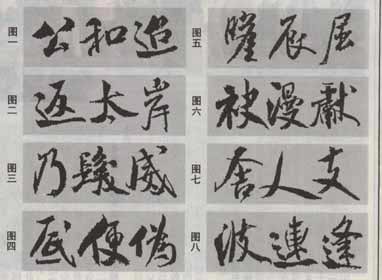 图一 公和
图二 返太岸
图三 乃威
图四 便偽
图五 辰
图六 被漫獻
图七 舍人支
图八 波連逢